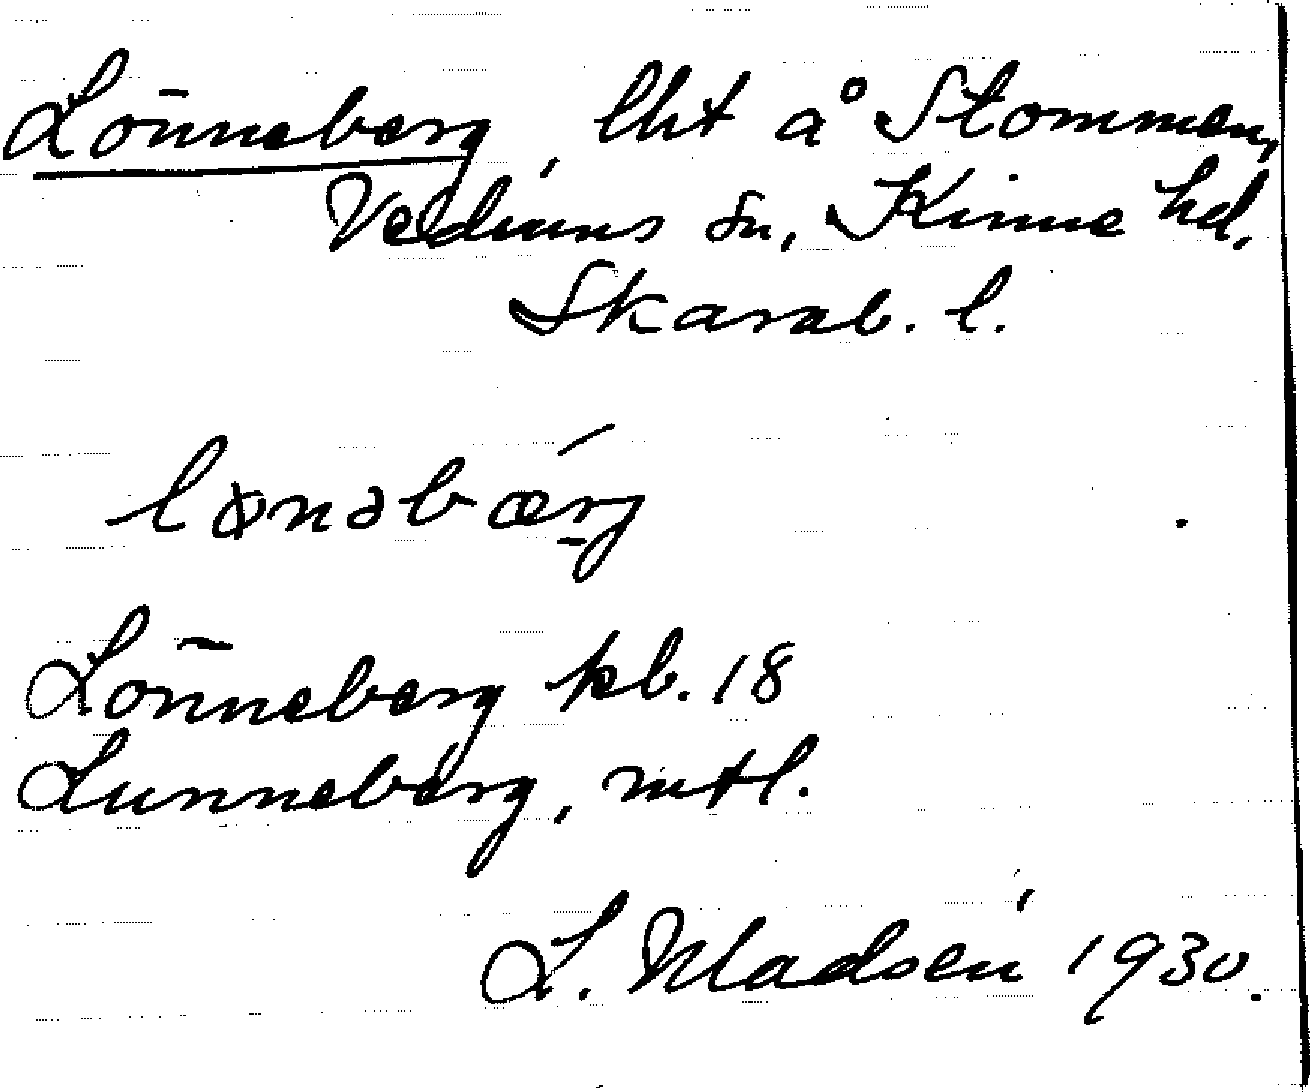 Lönneberg, lht å Stommen,
Vedums sn, Kinne hd,
Skarab. l.
lønəbærj
Lönneberg kb. 18
Lunneberg, mtl.
L. Madsén 1930.